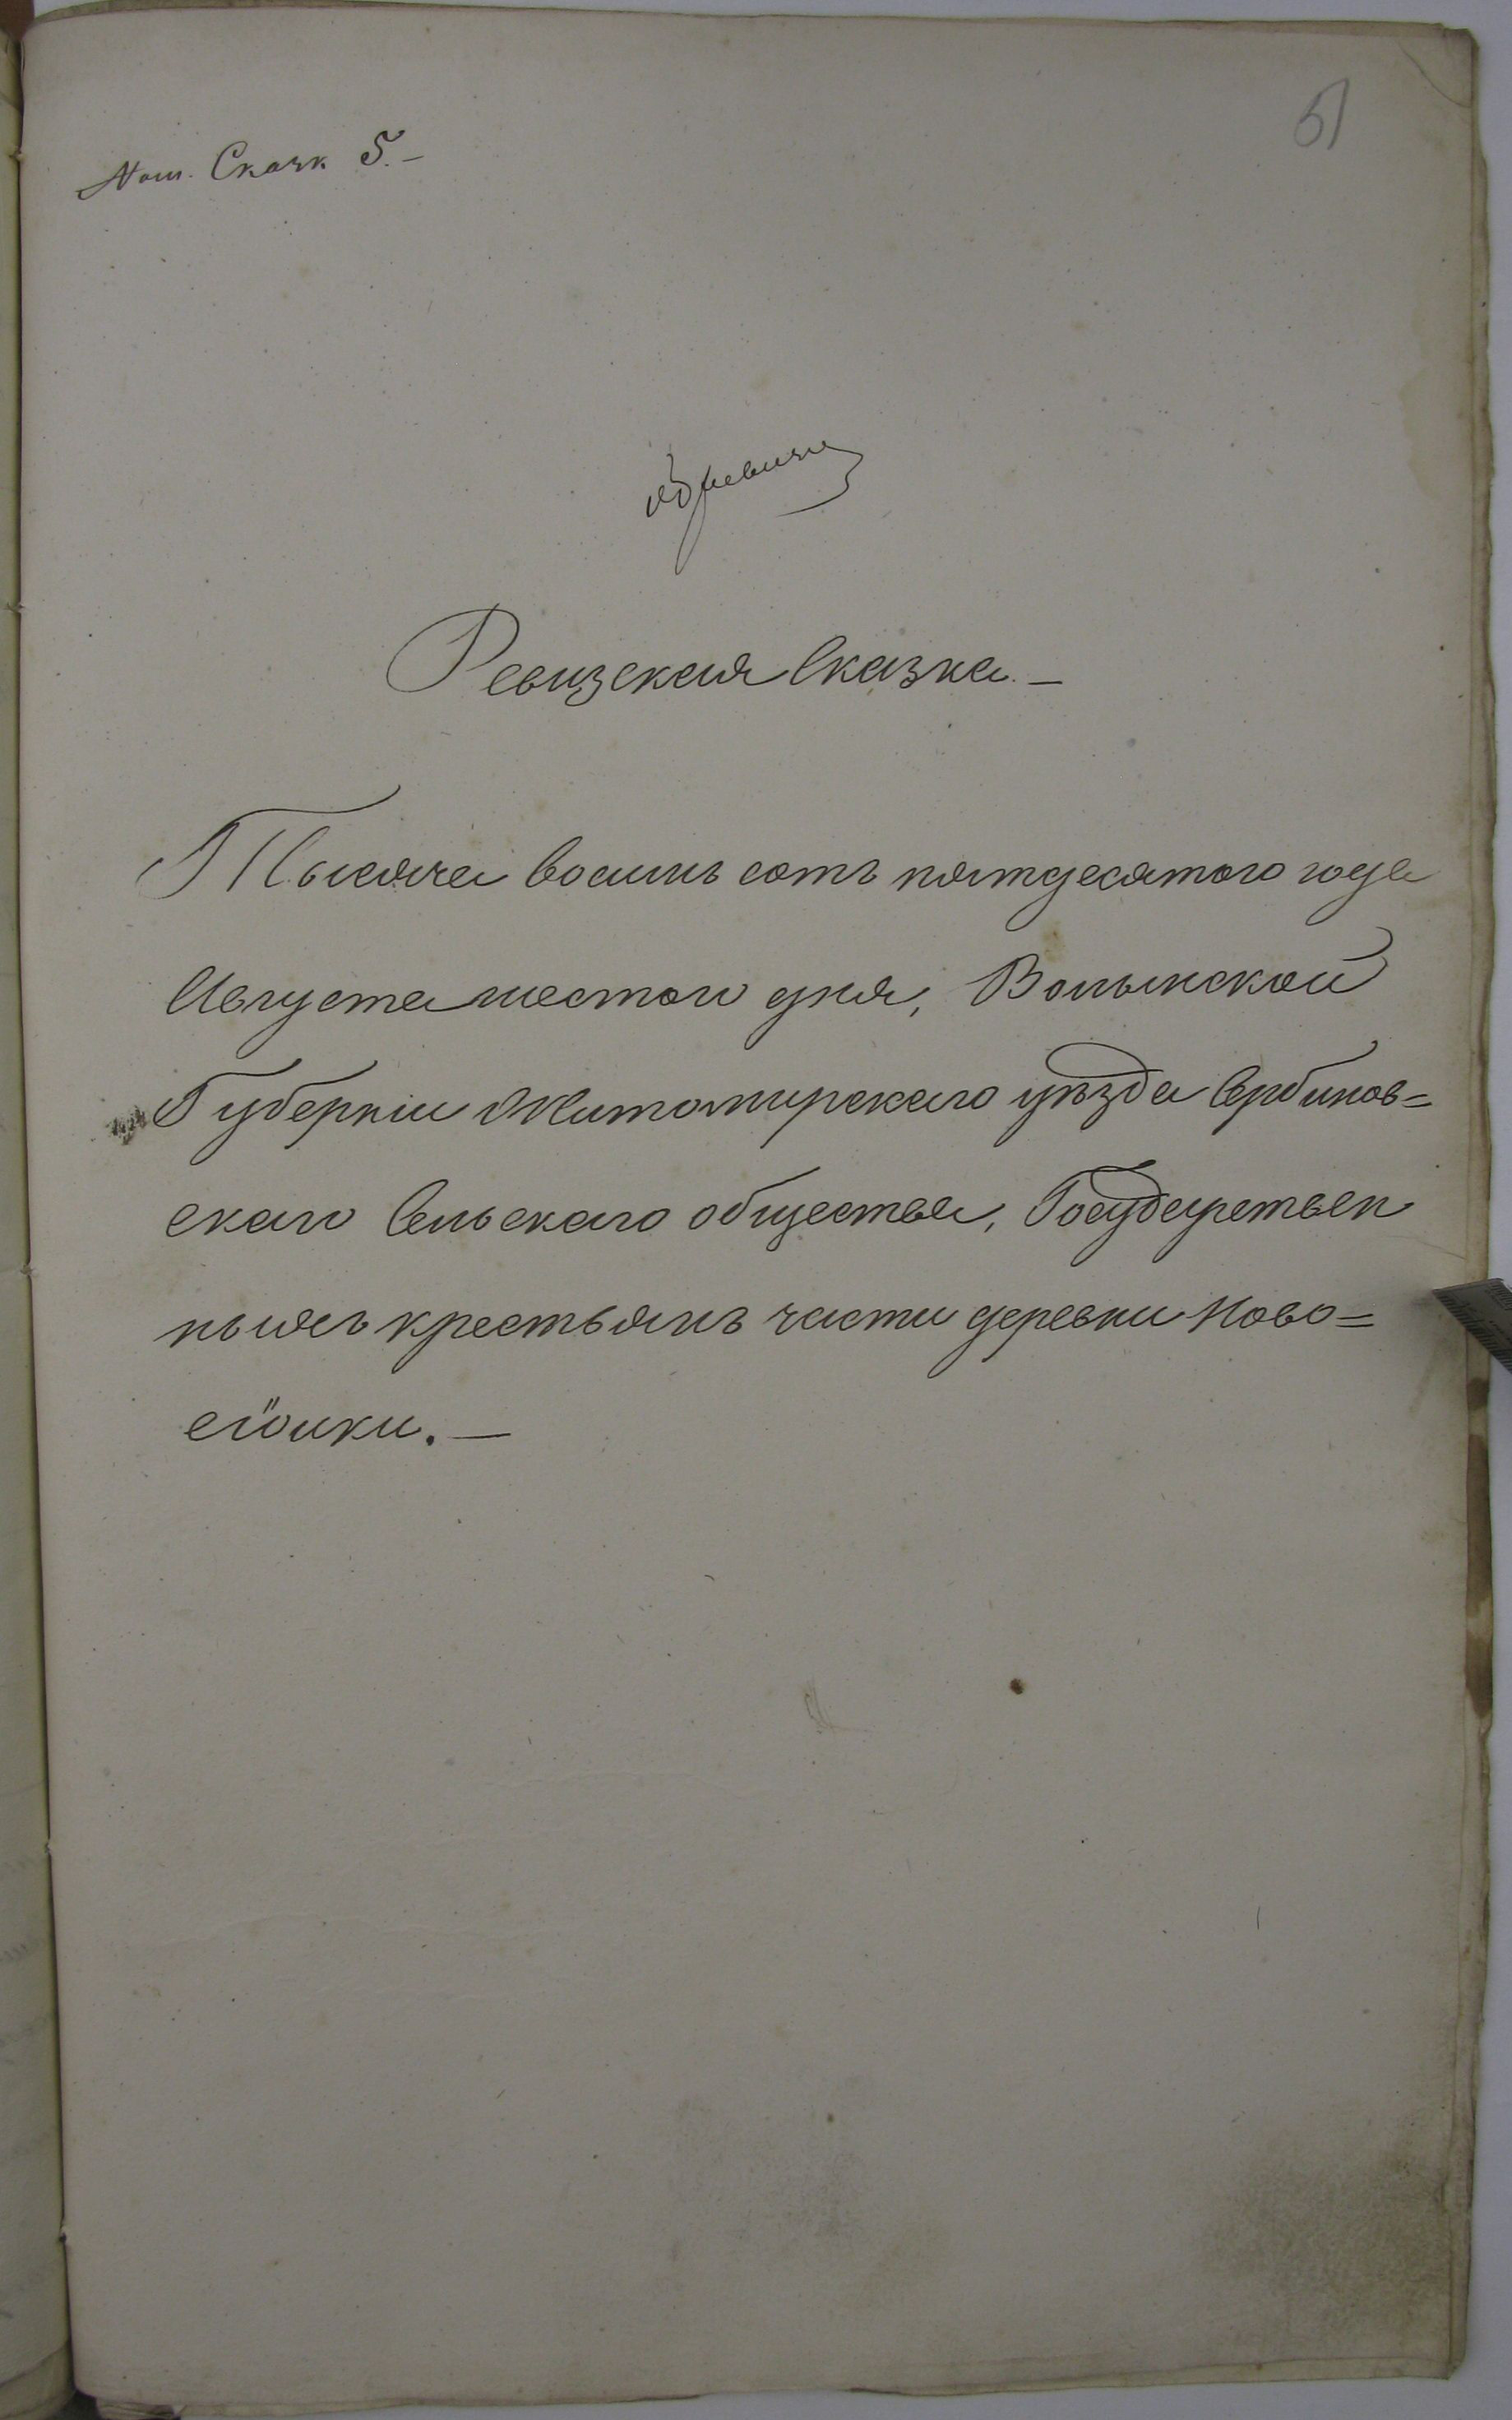 51
Скозк 5.-
Ревизская Сказка.-
Тысяча восимь сотъ пятдесятого года
Августа шестого дня, Волынской
Губерніи Житомирскаго уѣзда Сербинов=
скаго Сельскаго общества, Государствен
ныхъ крестьянъ части деревни Ново=
сіолки.-